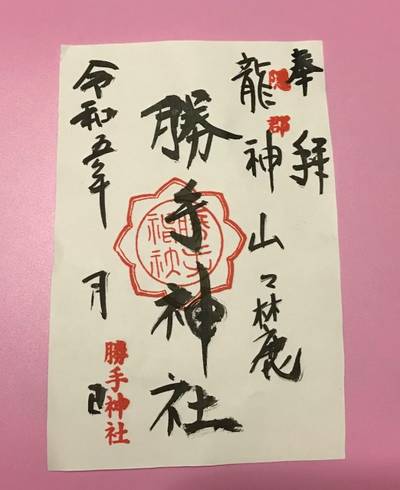 奉拝
隠郡
龍神山之麓
勝手神社
勝手神社
令和五年 月 日
勝手神社